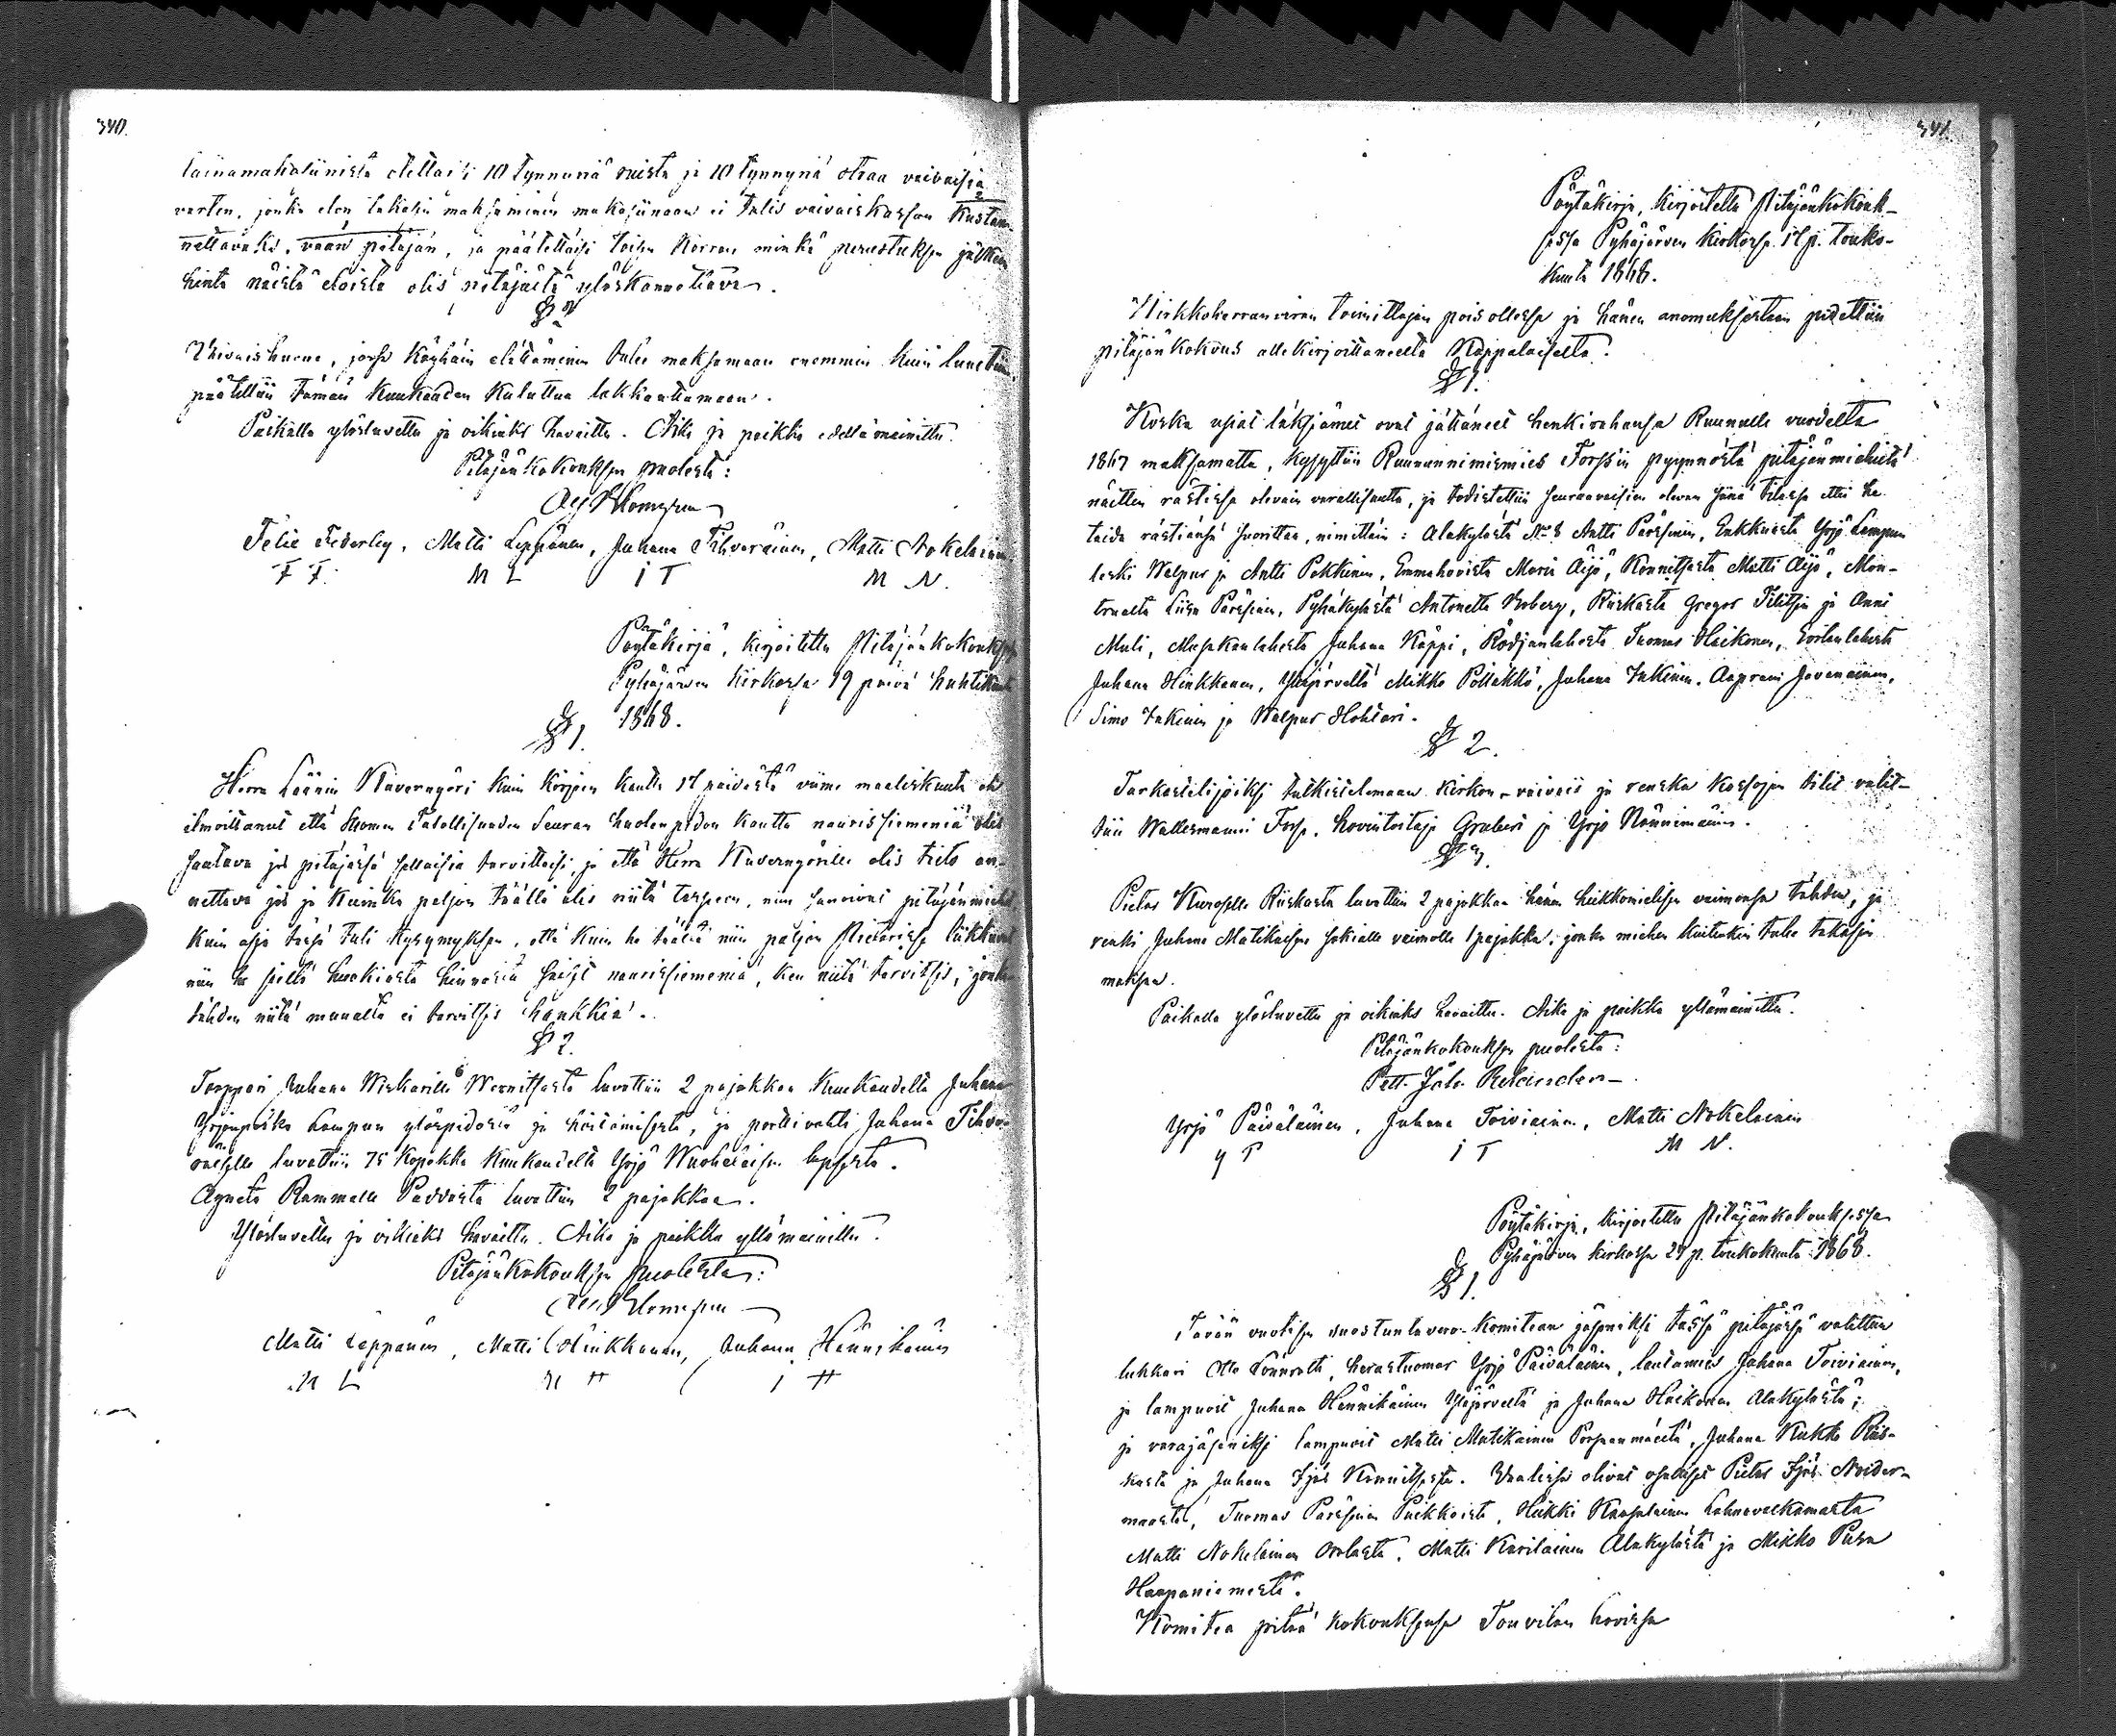 340.
lainamakasiinista otettaisi 10 tynnyriä ruista ja 10 tynnyriä otraa vaivaisia
varten, jonka elon takasin maksaminen makasiinaan ei tulis vaivaiskassan kustan-
nettavaksi, vaan pitäjän, ja päätettäisi toisen kerran minkä perustuksen jälkeen
hinta näistä eloista olis pitäjästä ylöskannettava.
§ 3
Vaivaishuone, jossa köyhäin elättäminen tulee maksamaan enemmin kuin luultiin,
päätettiin tämän kuukauden kuluttua lakkauttamaan.
Paikalla ylösluvettu ja oikiaks havaittu. Aika ja paikka edellämainittu.
Pitäjänkokouksen puolesta:
Felic Federley, Matti Leppänen, Juhana Tihveräinen, Matti Nokelainen
F F. M L I T M N.
Pöytäkirja, kirjoitettu Pitäjänkokouksessa
Pyhäjärven kirkossa 19 päivä huhtikuuta
1868.
§ 1.
Herra Läänin Kuvernyöri kuin kirjeen kautta 17 päivästä viime maaliskuuta oli
ilmoittanut että Suomen Talollisuuden Seuran huolenpidon kautta naurissiemeniä olis
saatava jos pitäjässä sellaisia tarvittaisi, ja että Herra Kuvernyörille olis tieto an-
nettava jos ja kuinka paljon täällä olis niitä tarpeen, niin sanoivat pitäjänmiehet,
kuin asia tässä tuli kysymyksen, että kuin he täältä niin paljon Pietarissa liikkuvat
niin he sieltä huokiasta hinnasta saisit naurissiemeniä, ken niitä tarvitsis, jonka
tähden niitä muualta ei tarvitsis hankkia.
§ 2.
Torppari Juhana Wiskarille Wernitsasta luvattiin 2 pajakkaa kuukaudelta Juhana
Yrjönpoika Lampun ylöspidosta ja hoitamisesta, ja porttivahti Juhana Tihve-
räiselle luvattiin 75 kopekka kuukaudelta Yrjö Wuohelaisen lapsesta.
Agneta Rammalle luvattiin 2 pajakkaa.
Ylösluvettu ja oikiaks havaittu. Aika ja paikka yllämainittu.
Pitäjänkokouksen puolesta:
Matti Leppänen, Matti Hinkkanen, Juhana Hännikäinen
M L M H I H
341.
Pöytäkirja, kirjoitettu Pitäjänkokouk-
sessa Pyhäjärven kirkossa 17 p. touko-
kuuta 1868.
Kirkkoherranviran toimittajan pois ollessa ja hänen anomuksestaan pidettiin
pitäjänkokous allekirjoittaneelta Kappalaiselta.
§ 1.
Koska usiat läksiämet ovat jättäneet henkirahansa Ruunulle vuodelta
1867 maksamatta, kysyttiin Ruununnimismies Forssin pyynnöstä pitäjänmiehiltä
näitten rästissä olevain varallisuutta, ja todistettiin seuraavaisien olevan siinä tilassa ettei he
taida rästiänsä suorittaa, nimittäin: Alakylästä No 8 Antti Pärssinen, Enkkuasta Yrjö Lampun
leski Walpur ja Antti Pokkinen, Emmahovista Maria Äijö, Konnitsasta Matti Äijö, Mon-
trualta Liisa Pärssinen, Pyhäkylästä Antonetta Broberg, Riiskasta Gregor Filitsin ja Anni
Muli, Musakanlahesta Juhana Käppi, Rödjanlahesta Tuomas Haikonen,
Juhana Hinkkanen, Yläjärveltä Mikko Pölläkkö, Juhana Inkinen, Aaprami Javanainen,
Simo Inkinen ja Walpur Hohtari.
§ 2.
Tarkastelijoiksi tutkistelemaan kirkon- vaivais ja ruuska kassojen tilit valit-
tiin Wallesmanni Forss, hovintoitaja Gruberi ja Yrjö Nännimäinen.
§ 3.
Pietar Kuroselle Riiskasta luvattiin 2 pajakkaa hänen heikkomielisen vaimonsa tähden, ja
renki Juhana Matikaisen sokialle vaimolle 1 pajakka, jonka miehen kuitenkin tulee takasin
maksaa.
Paikalla ylösluvettu ja oikiaks havaittu. Aika ja paikka yllämainittu.
Pitäjänkokouksen puolesta:
Pett. Joh. Relander.
Yrjö Päiväläinen, Juhana Toiviainen, Matti Nokelainen
Y P I T M N.
Pöytäkirja, kirjoitettu Pitäjänkokouksessa
Pyhäjärven kirkossa 24 p. toukokuuta 1868.
§ 1.
Tämän vuotisen suostuntavero-Komitean jäseniksi tässä pitäjässä valittiin
lukkari Otto Lönnroth, herastuomar Yrjö Päiväläinen, lautamies Juhana Toiviainen,
ja lampuoit Juhana Hännikäinen Yläjärveltä ja Juhana Haikonen Alakylästä;
ja varajäseniksi lampuoit Matti Matikainen Porsaanmäeltä, Juhana Kukko Riis-
kasta ja Juhana Ijäs Konnitsasta. Vaalissa olivat osalliset Pietar Ijäs Noider-
maasta, Tuomas Pärssinen Puikkoista, Heikki Kaasalainen Lahnavalkamasta
Matti Nokelainen Orolasta, Matti Karilainen Alakylästä ja Mikko Pusa
Haapaniemestä.
Komitea pitää kokouksensa Touvilan hovissa